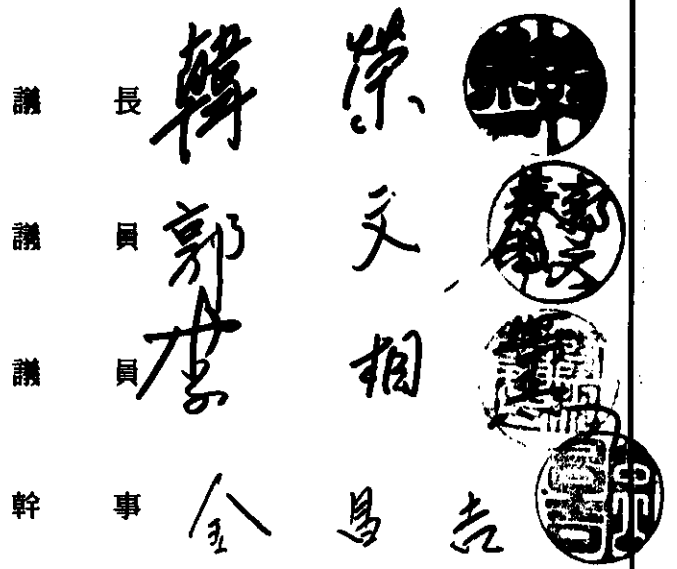 議長 韓榮
議員 郭文
議員 李相
幹事 金昌吉